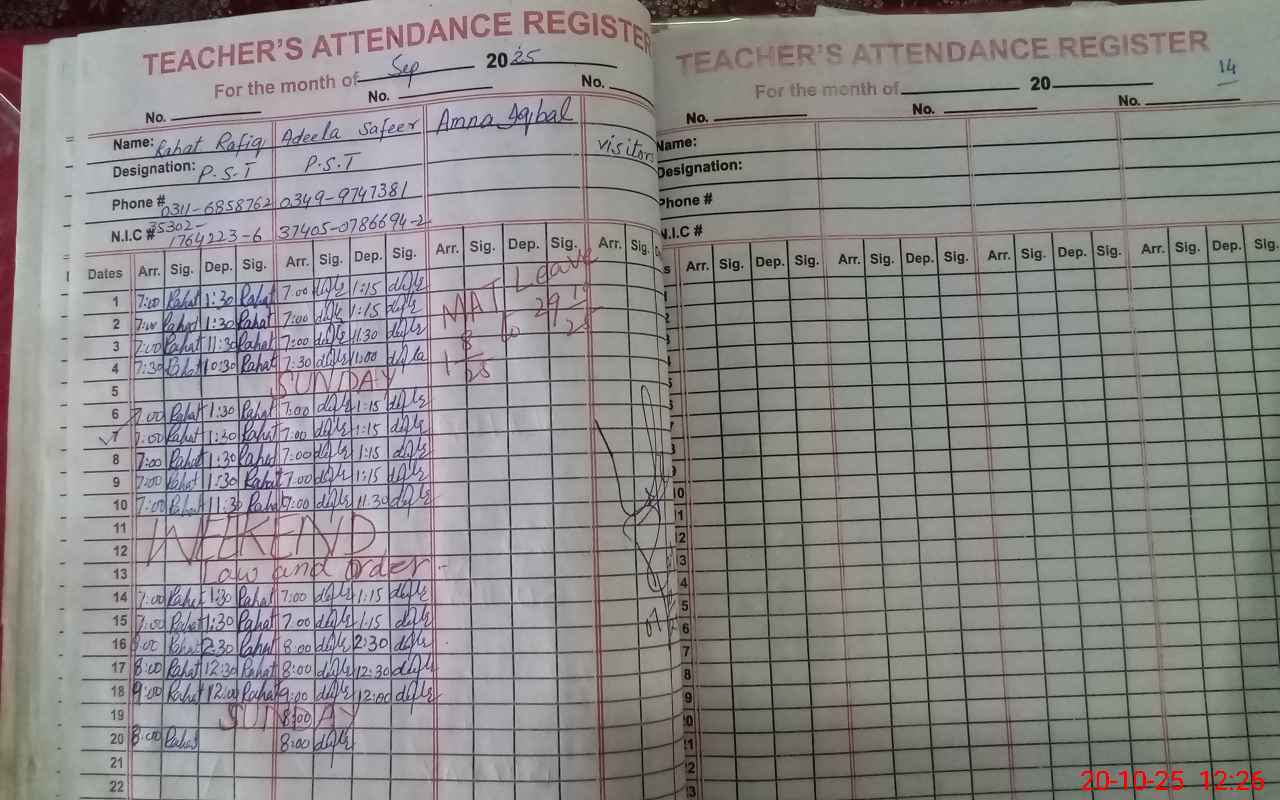 TEACHER'S ATTENDANCE REGISTER
For the month of Sep 2025
No. No. No.
Name: Rahat Rafiq Adeela Safeer Amna Iqbal
visitors
Designation: P.S.T P.S.T
Phone # 0311-6858762 0349-9747381
N.I.C # 35302-1764223-6 37405-0786694-2
Dates Arr. Sig. Dep. Sig. Arr. Sig. Dep. Sig. Arr. Sig. Dep. Sig. Arr. Sig.
MAT Leave
1 7:00 Rahat 1:30 Rahat 7:00 1:15
2 7:00 Rahat 1:30 Rahat 7:00 1:15
3 7:00 Rahat 11:30 Rahat 7:00 11:30
4 7:30 Rahat 10:30 Rahat 7:30 11:00
5 SUNDAY
6 7:00 Rahat 1:30 Rahat 7:00 1:15
7 7:00 Rahat 1:30 Rahat 7:00 1:15
8 7:00 Rahat 1:30 Rahat 7:00 1:15
9 7:00 Rahat 1:30 Rahat 7:00 1:15
10 7:00 Rahat 11:30 Rahat 7:00 11:30
11 WEEKEND
12
13 Law and order
14 7:00 Rahat 1:30 Rahat 7:00 1:15
15 7:00 Rahat 1:30 Rahat 7:00 1:15
16 8:00 Rahat 2:30 Rahat 8:00 2:30
17 8:00 Rahat 12:30 Rahat 8:00 12:30
18 9:00 Rahat 12:00 Rahat 9:00 12:00
19 SUNDAY 8:00
20 8:00 Rahat 8:00
21
22
TEACHER'S ATTENDANCE REGISTER
14
For the month of 20
No. No. No.
Name:
Designation:
Phone #
N.I.C #
Arr. Sig. Dep. Sig. Arr. Sig. Dep. Sig. Arr. Sig. Dep. Sig. Arr. Sig. Dep. Sig.
20-10-25 12:26